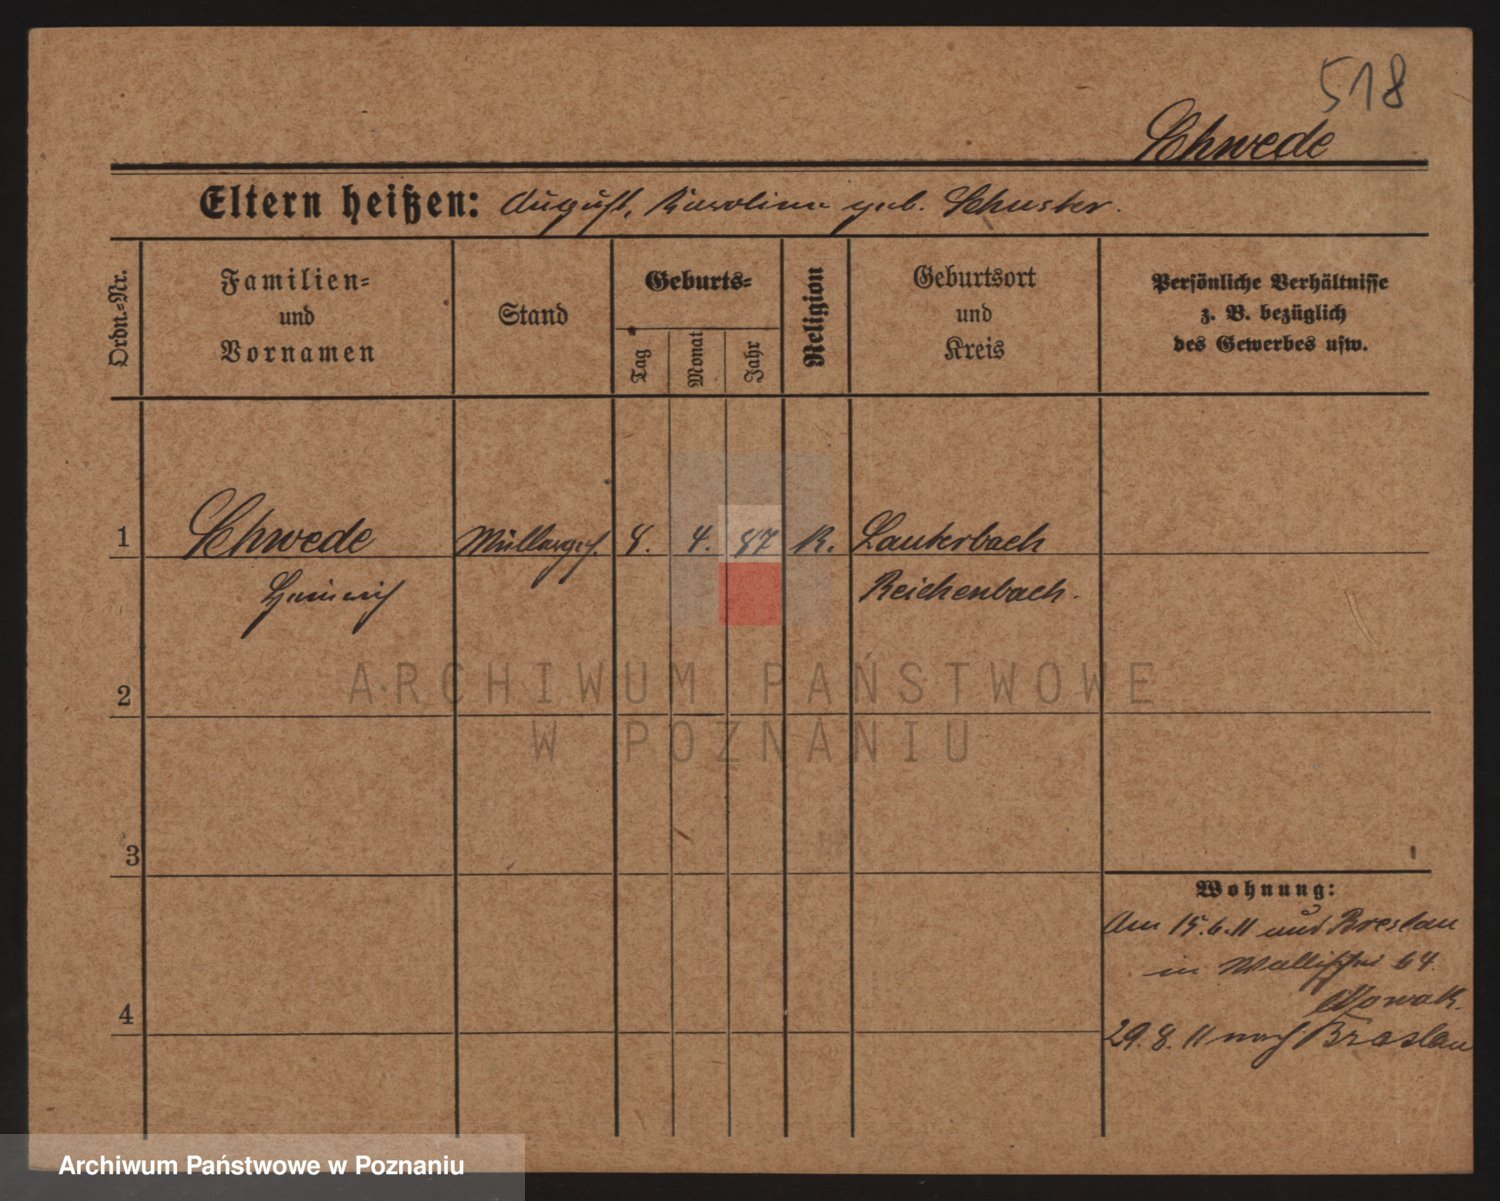 518
Schwede
Eltern heißen: August, Karoline geb. Schuster.
Ordn.-Nr.
Familien-
und
Vornamen
Stand
Geburts-
Tag
Monat
Jahr
Religion
Geburtsort
und
Kreis
Persönliche Verhältnisse
z. B. bezüglich
des Gewerbes usw.
1 Schwede Müllerges. 8. 4. 87 K. Lauterbach
Heinrich Reichenbach.
2
ARCHIWUM PAŃSTWOWE
W POZNANIU
3
Wohnung:
Am 15.6.11 aus Breslau
in Wallischei 64
Nowak.
4
29.8.11 nach Breslau
Archiwum Państwowe w Poznaniu